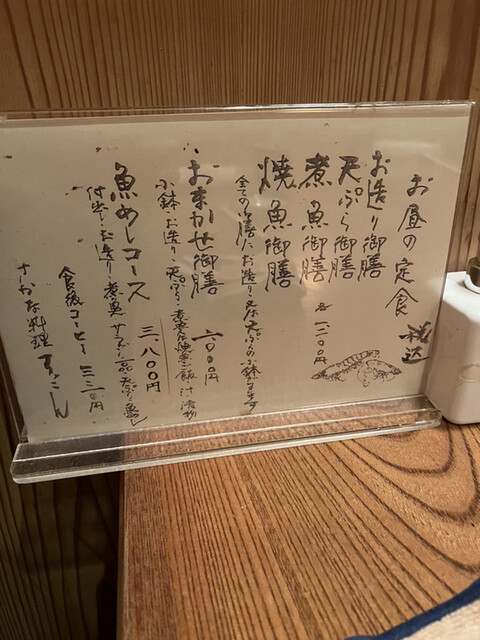 お昼の定食 税込
お造り御膳
天ぷら御膳
煮魚御膳
焼魚御膳
全ての御膳にお造り又は天ぷらの小鉢付きます
おまかせ御膳
小鉢・お造り・天ぷら・煮魚又は焼魚・ご飯・汁・漬物
魚めしコース 三、八〇〇円
付出し・お造り・煮魚
食後コーヒー 三三〇円
さかな料理